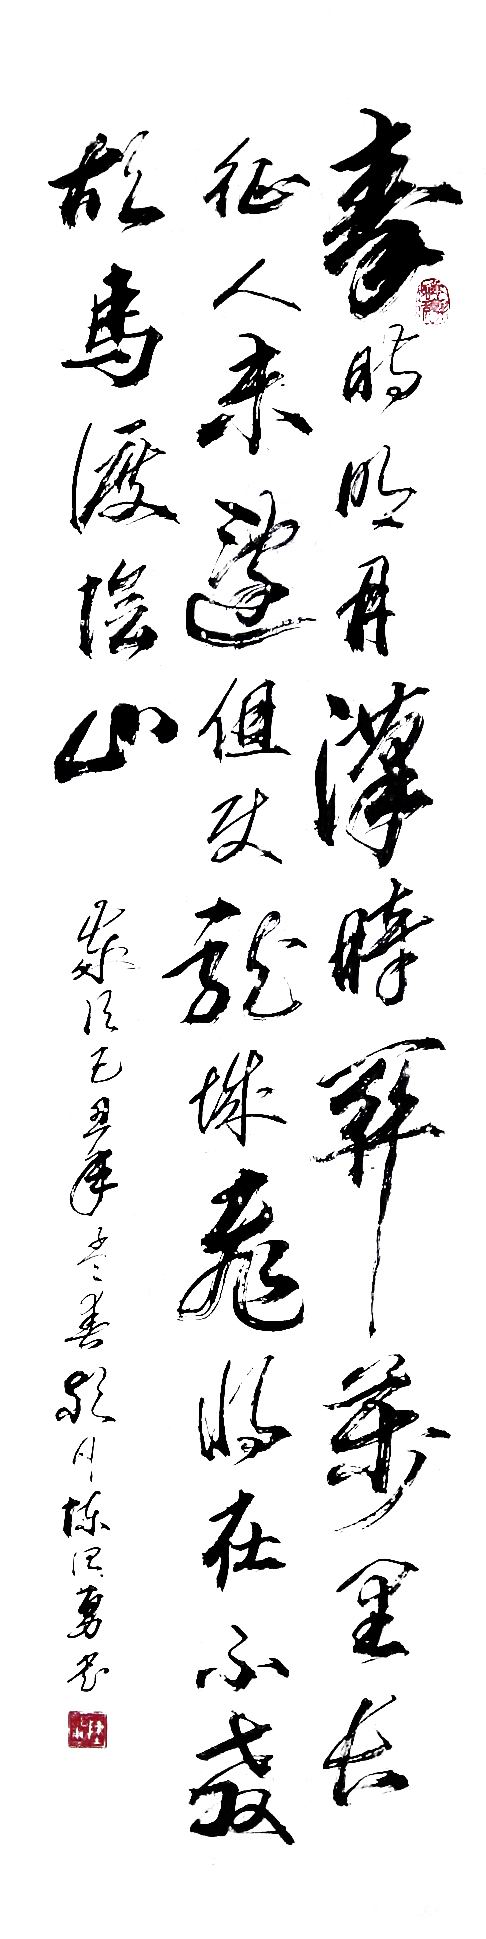 秦時明月漢時關萬里長
征人未還但使龍城飛將在不教
胡馬渡陰山
歲次己丑年孟春潁川陳勇書